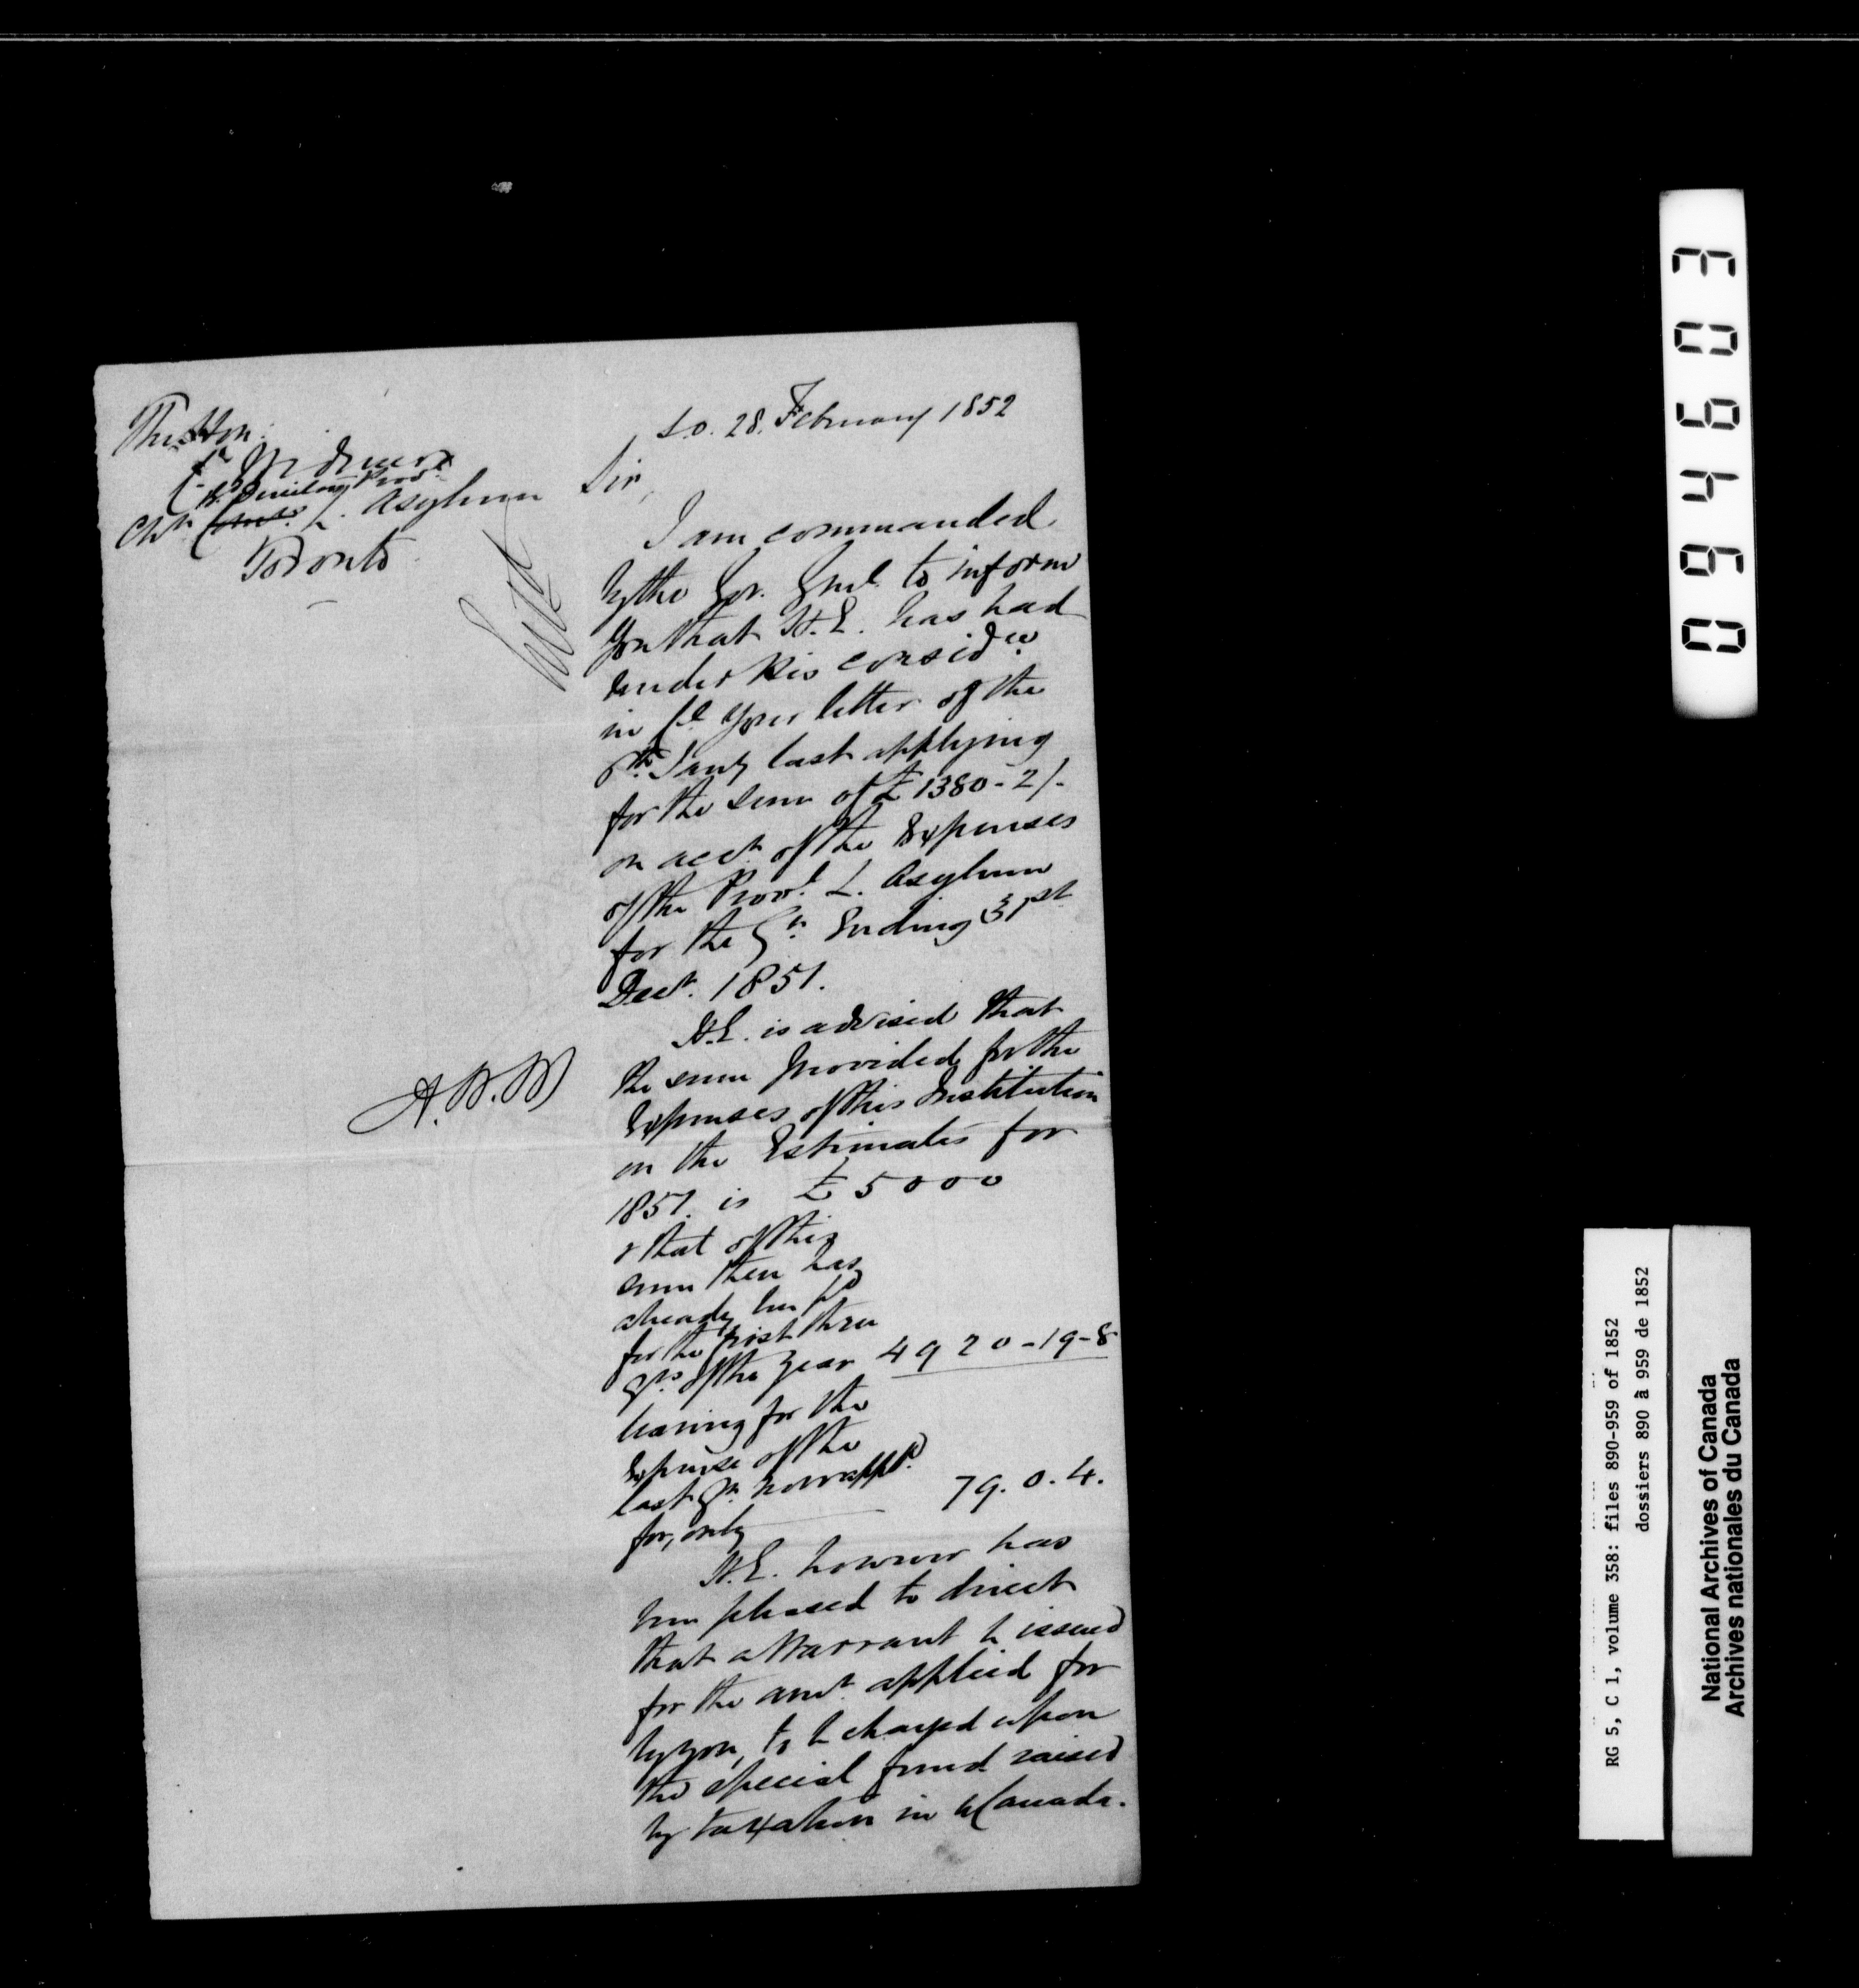 The Hon:
Chn L. Asylum
Toronto
S.O. 28. February 1852
Sir,
I am commanded
by the Gov. Genl. to inform
you that H.E. has had
under His considon
in Cl. your letter of the
Jany last applying
for the sum of £1380-2/-
on acct. of the Expenses
of the Provl. L. Asylum
for the Qr. Ending 31st
Decr. 1851.
H.E. is advised that
the sum provided for the
Expenses of this Institution
on the Estimates for
1851. is £5000
& that of this
sum there has
already been pd
for the first three
Qrs. of the year 4920-19-8
leaving for the
Expense of the
last Qr. now appd.
for, only 79.0.4.
A.N.M
H.E. however has
been pleased to direct
that a Warrant be issued
for the amt. applied for
by you, to be charged upon
the special fund raised
by taxation in U Canada.
094603
RG 5, C 1, volume 358: files 890-959 of 1852
dossiers 890 à 959 de 1852
National Archives of Canada
Archives nationales du Canada